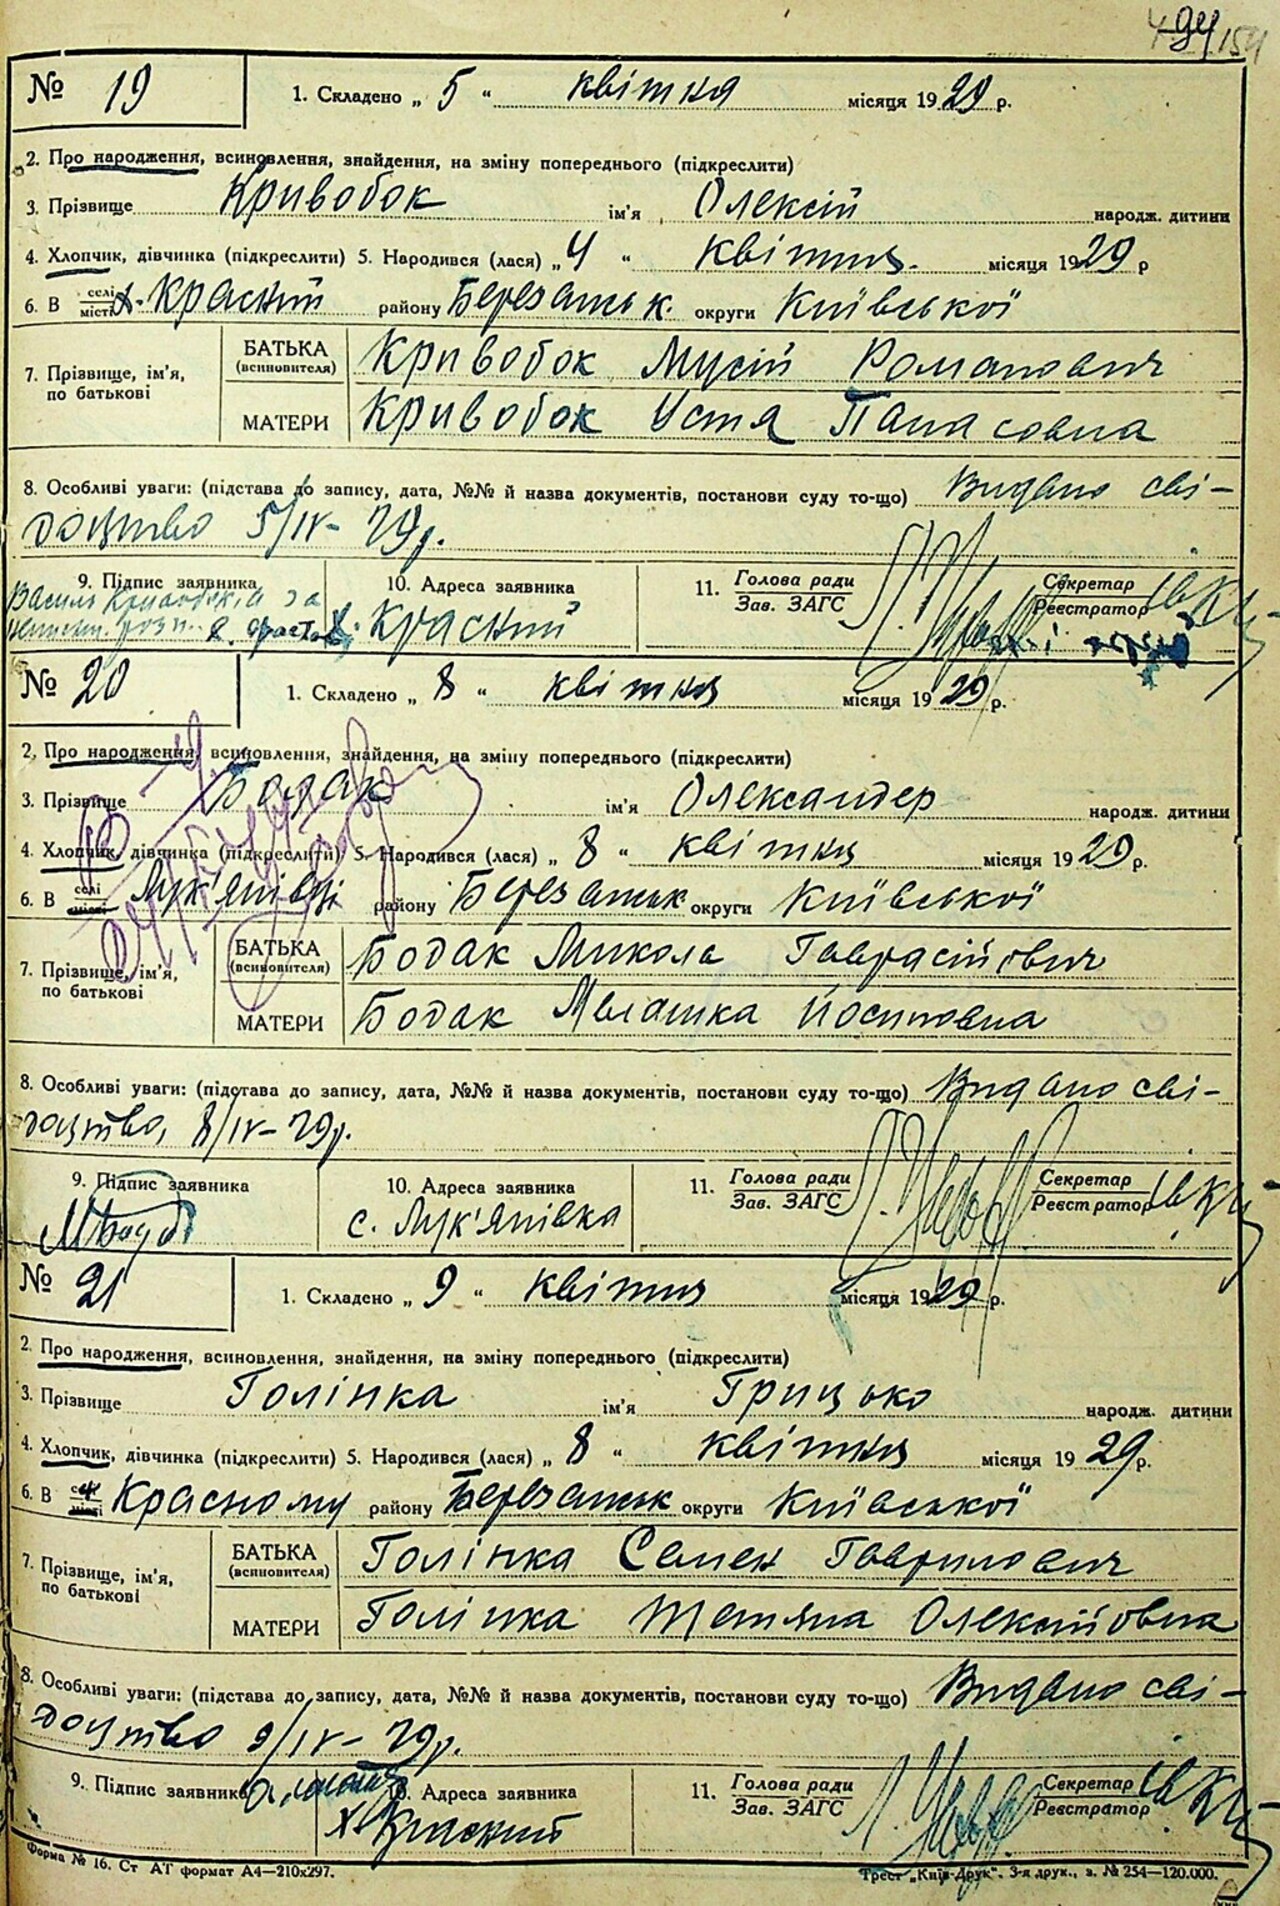 494 154
№ 19 1. Складено „ 5 “ квітня місяця 1929 р.
2. Про народження, всиновлення, знайдення, на зміну попереднього (підкреслити)
3. Прізвище Кривобок ім'я Олексій народж. дитини
4. Хлопчик, дівчинка (підкреслити) 5. Народився (лася) „ 4 “ квітня. місяця 1929 р
6. В селі місті х. Красний району Березанськ. округи Київської
7. Прізвище, ім'я, по батькові
БАТЬКА (всиновителя) Кривобок Мусій Романович
МАТЕРИ Кривобок Устя Панасовна
8. Особливі уваги: (підстава до запису, дата, №№ й назва документів, постанови суду то-що) Видано сві-
доцтво 5/IV- 29р.
9. Підпис заявника 10. Адреса заявника 11. Голова ради Зав. ЗАГС Секретар Реєстратор
Василь х. Красний
№ 20 1. Складено „ 8 “ квітня місяця 1929 р.
2. Про народження, всиновлення, знайдення, на зміну попереднього (підкреслити)
3. Прізвище Бодак ім'я Олександер народж. дитини
4. Хлопчик, дівчинка (підкреслити) 5. Народився (лася) „ 8 “ квітня місяця 1929 р.
6. В селі місті Лук'янівці району Березанськ округи Київської
7. Прізвище, ім'я, по батькові
БАТЬКА (всиновителя) Бодак Микола Гаврасійович
МАТЕРИ Бодак Мелашка Йосиповна
8. Особливі уваги: (підстава до запису, дата, №№ й назва документів, постанови суду то-що) Видано сві-
доцтво, 8/IV- 29р.
9. Підпис заявника 10. Адреса заявника 11. Голова ради Зав. ЗАГС Секретар Реєстратор
с. Лук'янівка
№ 21 1. Складено „ 9 “ квітня місяця 1929 р.
2. Про народження, всиновлення, знайдення, на зміну попереднього (підкреслити)
3. Прізвище Голінка ім'я Грицько народж. дитини
4. Хлопчик, дівчинка (підкреслити) 5. Народився (лася) „ 8 “ квітня місяця 1929р.
6. В місті Красному району Березанськ округи Київської
7. Прізвище, ім'я, по батькові
БАТЬКА (всиновителя) Голінка Семен Гаврилович
МАТЕРИ Голінка Тетяна Олексійовна
8. Особливі уваги: (підстава до запису, дата, №№ й назва документів, постанови суду то-що) Видано сві-
доцтво 9/IV- 29р.
9. Підпис заявника 10. Адреса заявника 11. Голова ради Зав. ЗАГС Секретар Реєстратор
х. Красний
Форма № 16. Ст АТ формат А4—210х297. Трест „Київ-Друк“. 3-я друк., з. № 254—120.000.